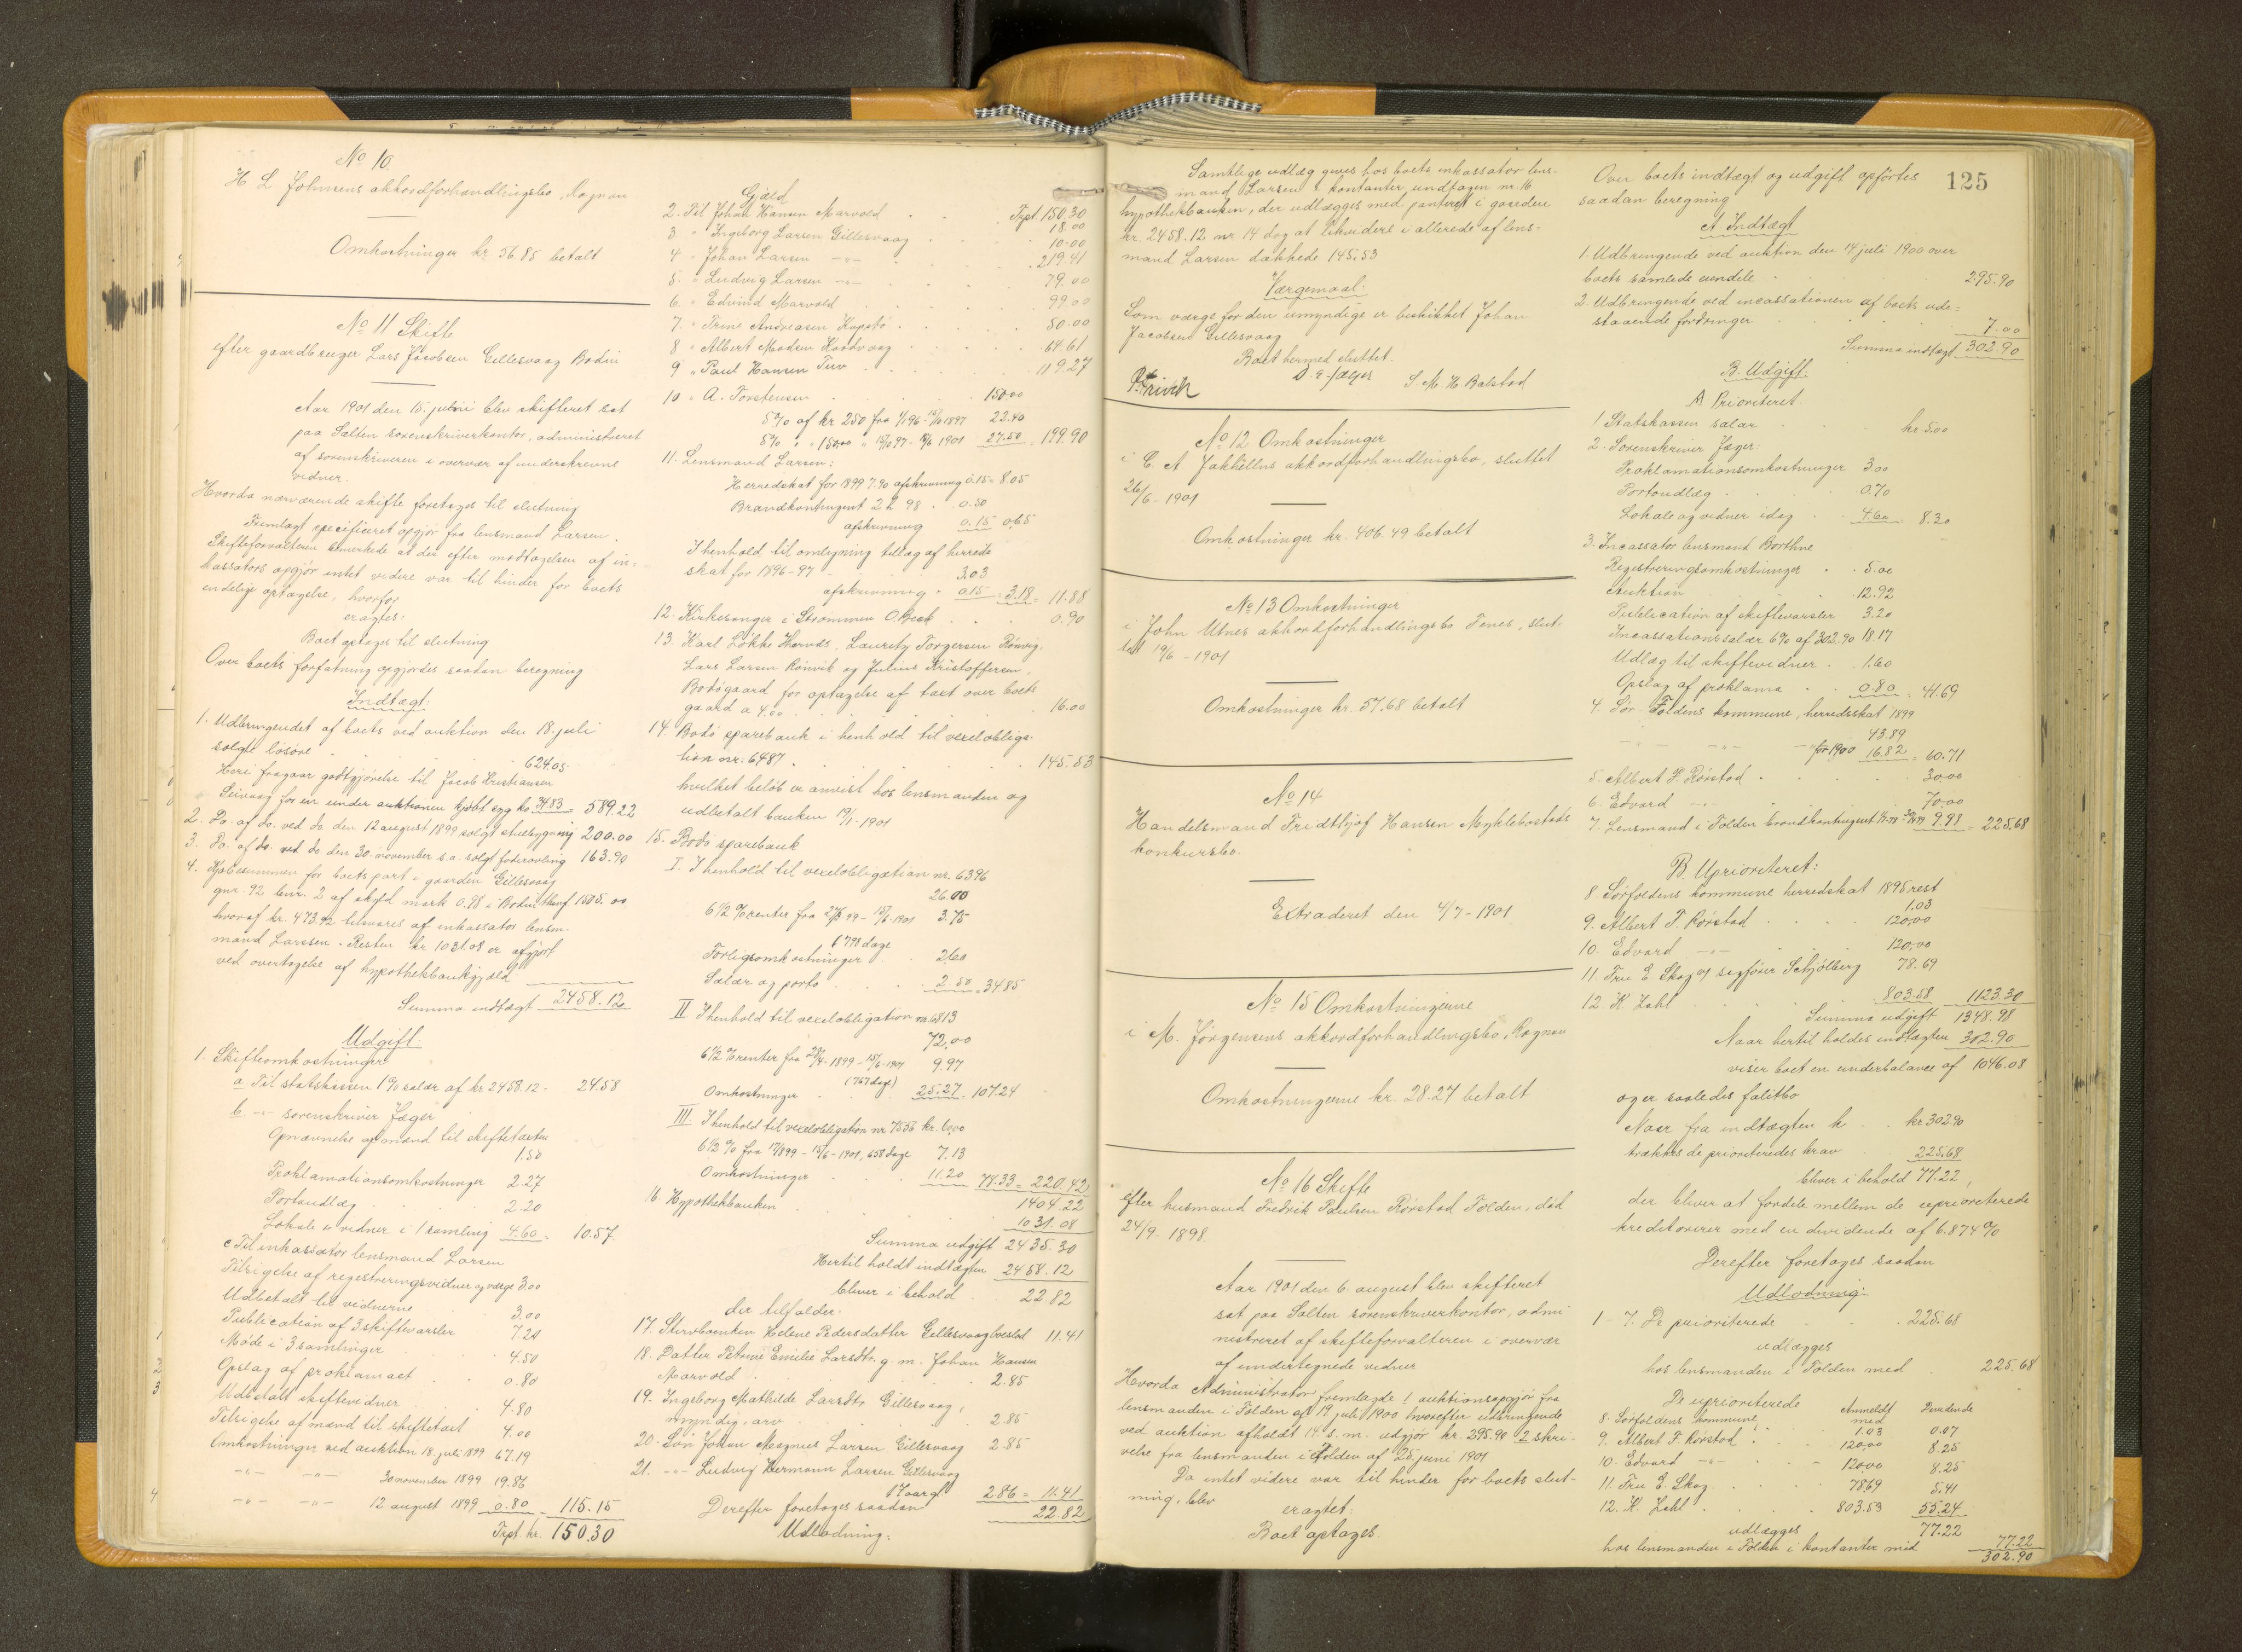 No 10.
H L Johnsens akkordforhandlingsbo, Rognan
Omkostninger kr 56.85 betalt
No 11 Skifte
efter gaardbruger Lars Jacobsen Gillesvaag Bodin
Aar 1901 den 15. juni blev skifteret sat
paa Salten sorenskriverkontor, administreret
af sorenskriveren i overvær af underskrevne
vidner.
Hvorda nærværende skifte foretages til slutning
Fremlagt specificeret opgjør fra lensmand Larsen.
Skifteforvalteren bemerkede at der efter modtagelsen af in-
kassators opgjør intet videre var til hinder for boets
endelige optagelse, hvorfor
eragtes:
Boet optages til slutning
Over boets forfatning opgjordes saadan beregning
Indtægt:
1. Udbringendet af boets ved auktion den 18. juli
solgte løsøre . . . 624.05
Heri fragaar godtgjørelse til Jacob Kristiansen
Seivaag for en under auktionen kjøbt syg ko 34.83 589.22
2. Do. af do. ved do den 12 august 1899 solgt stuebygning 200.00
3. Do. af do. ved do den 30. november s.a. solgt foderavling 163.90
4. Kjøbesummen for boets part i gaarden Gillesvaag
gnr. 92 bnr. 2 af skyld mark 0.98 i Bodin 1505.00
hvoraf kr. 473.92 tilsvares af inkassator lens-
mand Larssen. Resten kr 1031.08 er afgjort
ved overtagelse af hypothekbankgjæld
Summa indtægt 2458.12
Udgift:
1. Skifteomkostninger
a Til statskassen 1% salær af kr 2458.12 - 24.58
b. -"- sorenskriver Jæger
Opnævnelse af mænd til skiftetaxten
1.50
Proklamationsomkostninger 2.27
Portoudlæg 2.20
Lokale & vidner i 1 samling 4.60 = 10.57.
c Til inkassator lensmand Larsen
Tilsigelse af registreringsvidner og værge 3.00
Udbetalt til vidnerne 3.00
Publication af 3 skiftevarsler 7.20
Møde i 3 samlinger 4.50
Opslag af proklamaet 0.80
Udbetalt skiftevidner 4.80
Tilsigelse af mænd til skiftetaxt 4.00
Omkostninger ved auktion 18. juli 1899 67.19
-"- -"- 30 november 1899 19.86
-"- -"- 12 august 1899 0.80 = 115.15
Trpt. kr. 150.30
Gjæld
Trpt. 150.30
2. Til Johan Hansen Marvold 18.00
3 " Ingeborg Larsen Gillesvaag 10.00
4 " Johan Larsen -"- 219.41
5. " Ludvig Larsen -"- 79.00
6. " Edvind Marvold 99.00
7. " Trine Andreasen Kopstø 50.00
8 " Albert Madsen Kvodvaag 64.61
9 " Paul Hansen Tuv 119.27
10 " A. Torstensen 150.00
5% af kr 250 fra 1/1 96 - 15/10 1897 22.40
5% " " 150.00 " 15/10 97 - 15/6 1901 27.50 = 199.90
11. Lensmand Larsen:
Herredskat for 1899 7.90 afskrivning 0.15 = 8.05
Brandkontingent 2 H 98 . 0.50
afskrivning 0.15 0.65
I henhold til omligning tillæg af herreds
skat for 1896-97 3.03
afskrivning " 0.15 = 3.18 = 11.88
12. Kirkesanger i Strømmen O. Beck 0.90
13. Karl Løkke Hernds, Lauritz Torgersen Rønvig,
Lars Larsen Rønvik og Julius Kristoffersen,
Bodøgaard for optagelse af taxt over boets
gaard a 4.00 16.00
14. Bodø sparebank i henhold til vexelobliga-
tion nr. 6487 . 145.53
hvilket beløb er anvist hos lensmanden og
udbetalt banken 19/1-1901
15. Bodø sparebank
I. I henhold til vexelobligation nr. 6396
26.00
6 1/2 % renter fra 27/3 99 - 15/6-1901 3.75
798 dage
Forligsomkostninger 2.60
Salær og porto 2.50 = 34.85
II I henhold til vexelobligation nr. 6813
72.00
6 1/2 % renter fra 29/4-1899 - 15/6-1901 9.97
(767 dage)
Omkostninger 25.27 . 107.24
III. I henhold til vexelobligation nr 7556 kr. 60.00
6 1/2 % fra 17/8 99 - 15/6-1901, 658 dage 7.13
Omkostninger 11.20 78.33 = 220.42
1404.22
16. Hypothekbanken 1031.08
Summa udgift 2435.30
Hertil holdt indtægten 2458.12
bliver i behold 22.82
der tilfalder:
17. Stervboenken Helene Pedersdatter Gillesvaag boeslod 11.41
18. Datter Petrine Emilie Larsdtr. g. m. Johan Hansen
Marvold 2.85
19. Ingeborg Mathilde Larsdtr Gillesvaag,
myndig, arv 2.85
20. Søn Johan Magnus Larsen Gillesvaag 2.85
21. -"- Ludvig Hermann Larsen Gillesvaag
17 aar gl. 2.86 = 11.41
22.82
Derefter foretages saadan
Udlodning:
Samtlige udlæg gives hos boets inkassator lens-
mand Larsen i kontanter undtagen nr. 16
hypothekbanken, der udlægges med panteret i gaarden
kr. 2458.12 nr 14 dog at likvideres i allerede af lens-
mand Larsen dækkede 145.53
Værgemaal:
Som værge for den umyndige er beskikket Johan
Jacobsen Gillesvaag
Boet hermed sluttet.
D. E. Jæger
S. M. H. Balstad
No 12 Omkostninger
i C. A Jakhellns akkordforhandlingsbo, sluttet
26/6-1901
Omkostninger kr. 406.49 betalt
No 13 Omkostninger
i John Utnes akkordforhandlingsbo Fenes, slut-
tet 19/6-1901
Omkostninger kr. 57.68 betalt
No 14
Handelsmand Fridthjof Hansen Myklebostads
konkursbo.
Extraderet den 4/7-1901
No 15 Omkostningerne
i M. Jørgensens akkordforhandlingsbo, Rognan
Omkostningerne kr. 28.27 betalt
No 16 Skifte
efter husmand Fredrik Paulsen Rørstad Folden, død
24/9-1898.
Aar 1901 den 6. august blev skifteret
sat paa Salten sorenskriverkontor, admi-
nistreret af skifteforvalteren i overvær
af undertegnede vidner
Hvorda Administrator fremlagde 1 auktionsopgjør fra
lensmanden i Folden af 19 juli 1900 hvorefter udbringende
ved auktion afholdt 14. s. m. udgjør kr. 295.90 2 skri-
velse fra lensmanden i Folden af 25. juni 1901
Da intet videre var til hinder for boets slut-
ning, blev
eragtet:
Boet optages.
125
Over boets indtægt og udgift opførtes
saadan beregning
A. Indtægt
1. Udbringende ved auktion den 14 juli 1900 over
boets samlede eiendele 295.90
2. Udbringende ved incassationen af boets ude-
staaende fordringer 7.00
Summa indtægt 302.90
B. Udgift:
A Prioriteret.
1 Statskassen salær kr. 5.00
2. Sorenskriver Jæger:
Proklamationsomkostninger 3.00
Portoudlæg 0.70
Lokale og vidner idag 4.60 = 8.30
3. Incassator lensmand Borthne
Registreringsomkostninger 5.00
Auktion 12.92
Publication af skiftevarsler 3.20
Incassationssalær 6% af 302.90 18.17
Udlæg til skiftevidner 1.60
Opslag af proklama 0.80 = 41.69
4. Sør-Foldens kommune, herredsskat 1899
43.89
-"- -"- -"- for 1900 16.82 = 60.71
5. Albert F. Rørstad 30.00
6. Edvard -"- 70.00
7. Lensmand i Folden brandkontingent 9.98 = 225.68
B. Uprioriteret:
8. Sørfoldens kommune herredskat 1895 rest
1.03
9. Albert F. Rørstad 120.00
10. Edvard -"- 120.00
11 Fru E Skog v/ sagfører Schjølberg 78.69
12. K. Zahl 803.58 1123.30
Summa udgift 1348.98
Naar hertil holdes indtægten 302.90
viser boet en underbalance af 1046.08
og er saaledes falitbo
Naar fra indtægten kr kr 302.90
trækkes de prioriteredes krav 225.68
bliver i behold 77.22,
der bliver at fordele mellem de uprioriterede
kreditorer med en dividende af 6.874%
Derefter foretages saadan
Udlodning:
1-7. De prioriterede 225.68
udlægges
hos lensmanden i Folden med 225.68
De uprioriterede Anmeldt Dividende
med
8. Sørfoldens kommune 1.03 0.07
9. Albert F. Rørstad 120.00 8.25
10. Edvard -"- 120.00 8.25
11. Fru E. Skog 78.69 5.41
12. K. Zahl 803.53 55.24
udlægges 77.22
hos lensmanden i Folden i kontanter med 77.22
302.90